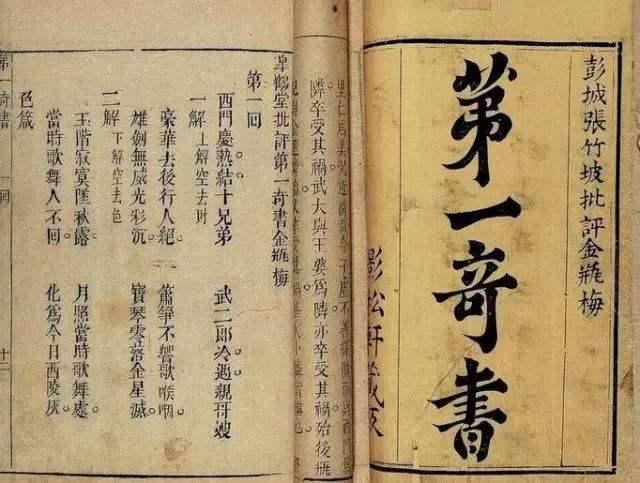 彭城張竹坡批評金瓶梅
第一奇書
影松軒
隣卒受其禍武大與王婆爲隣亦卒受其禍殆後瓶
皐鶴堂批評第一奇書金瓶梅
第一回
西門慶熱結十兄弟　武二郎冷遇親哥嫂
一解　上解空去財
豪華去後行人絕。　簫箏不響歌喉咽。
雄劍無威光彩沉。　寶琴零落金星滅。
二解　下解空去色
玉階寂寞墜秋露。　月照當時歌舞處。
當時歌舞人不回。　化爲今日西陵灰。
色箴
第一奇書　回　十二